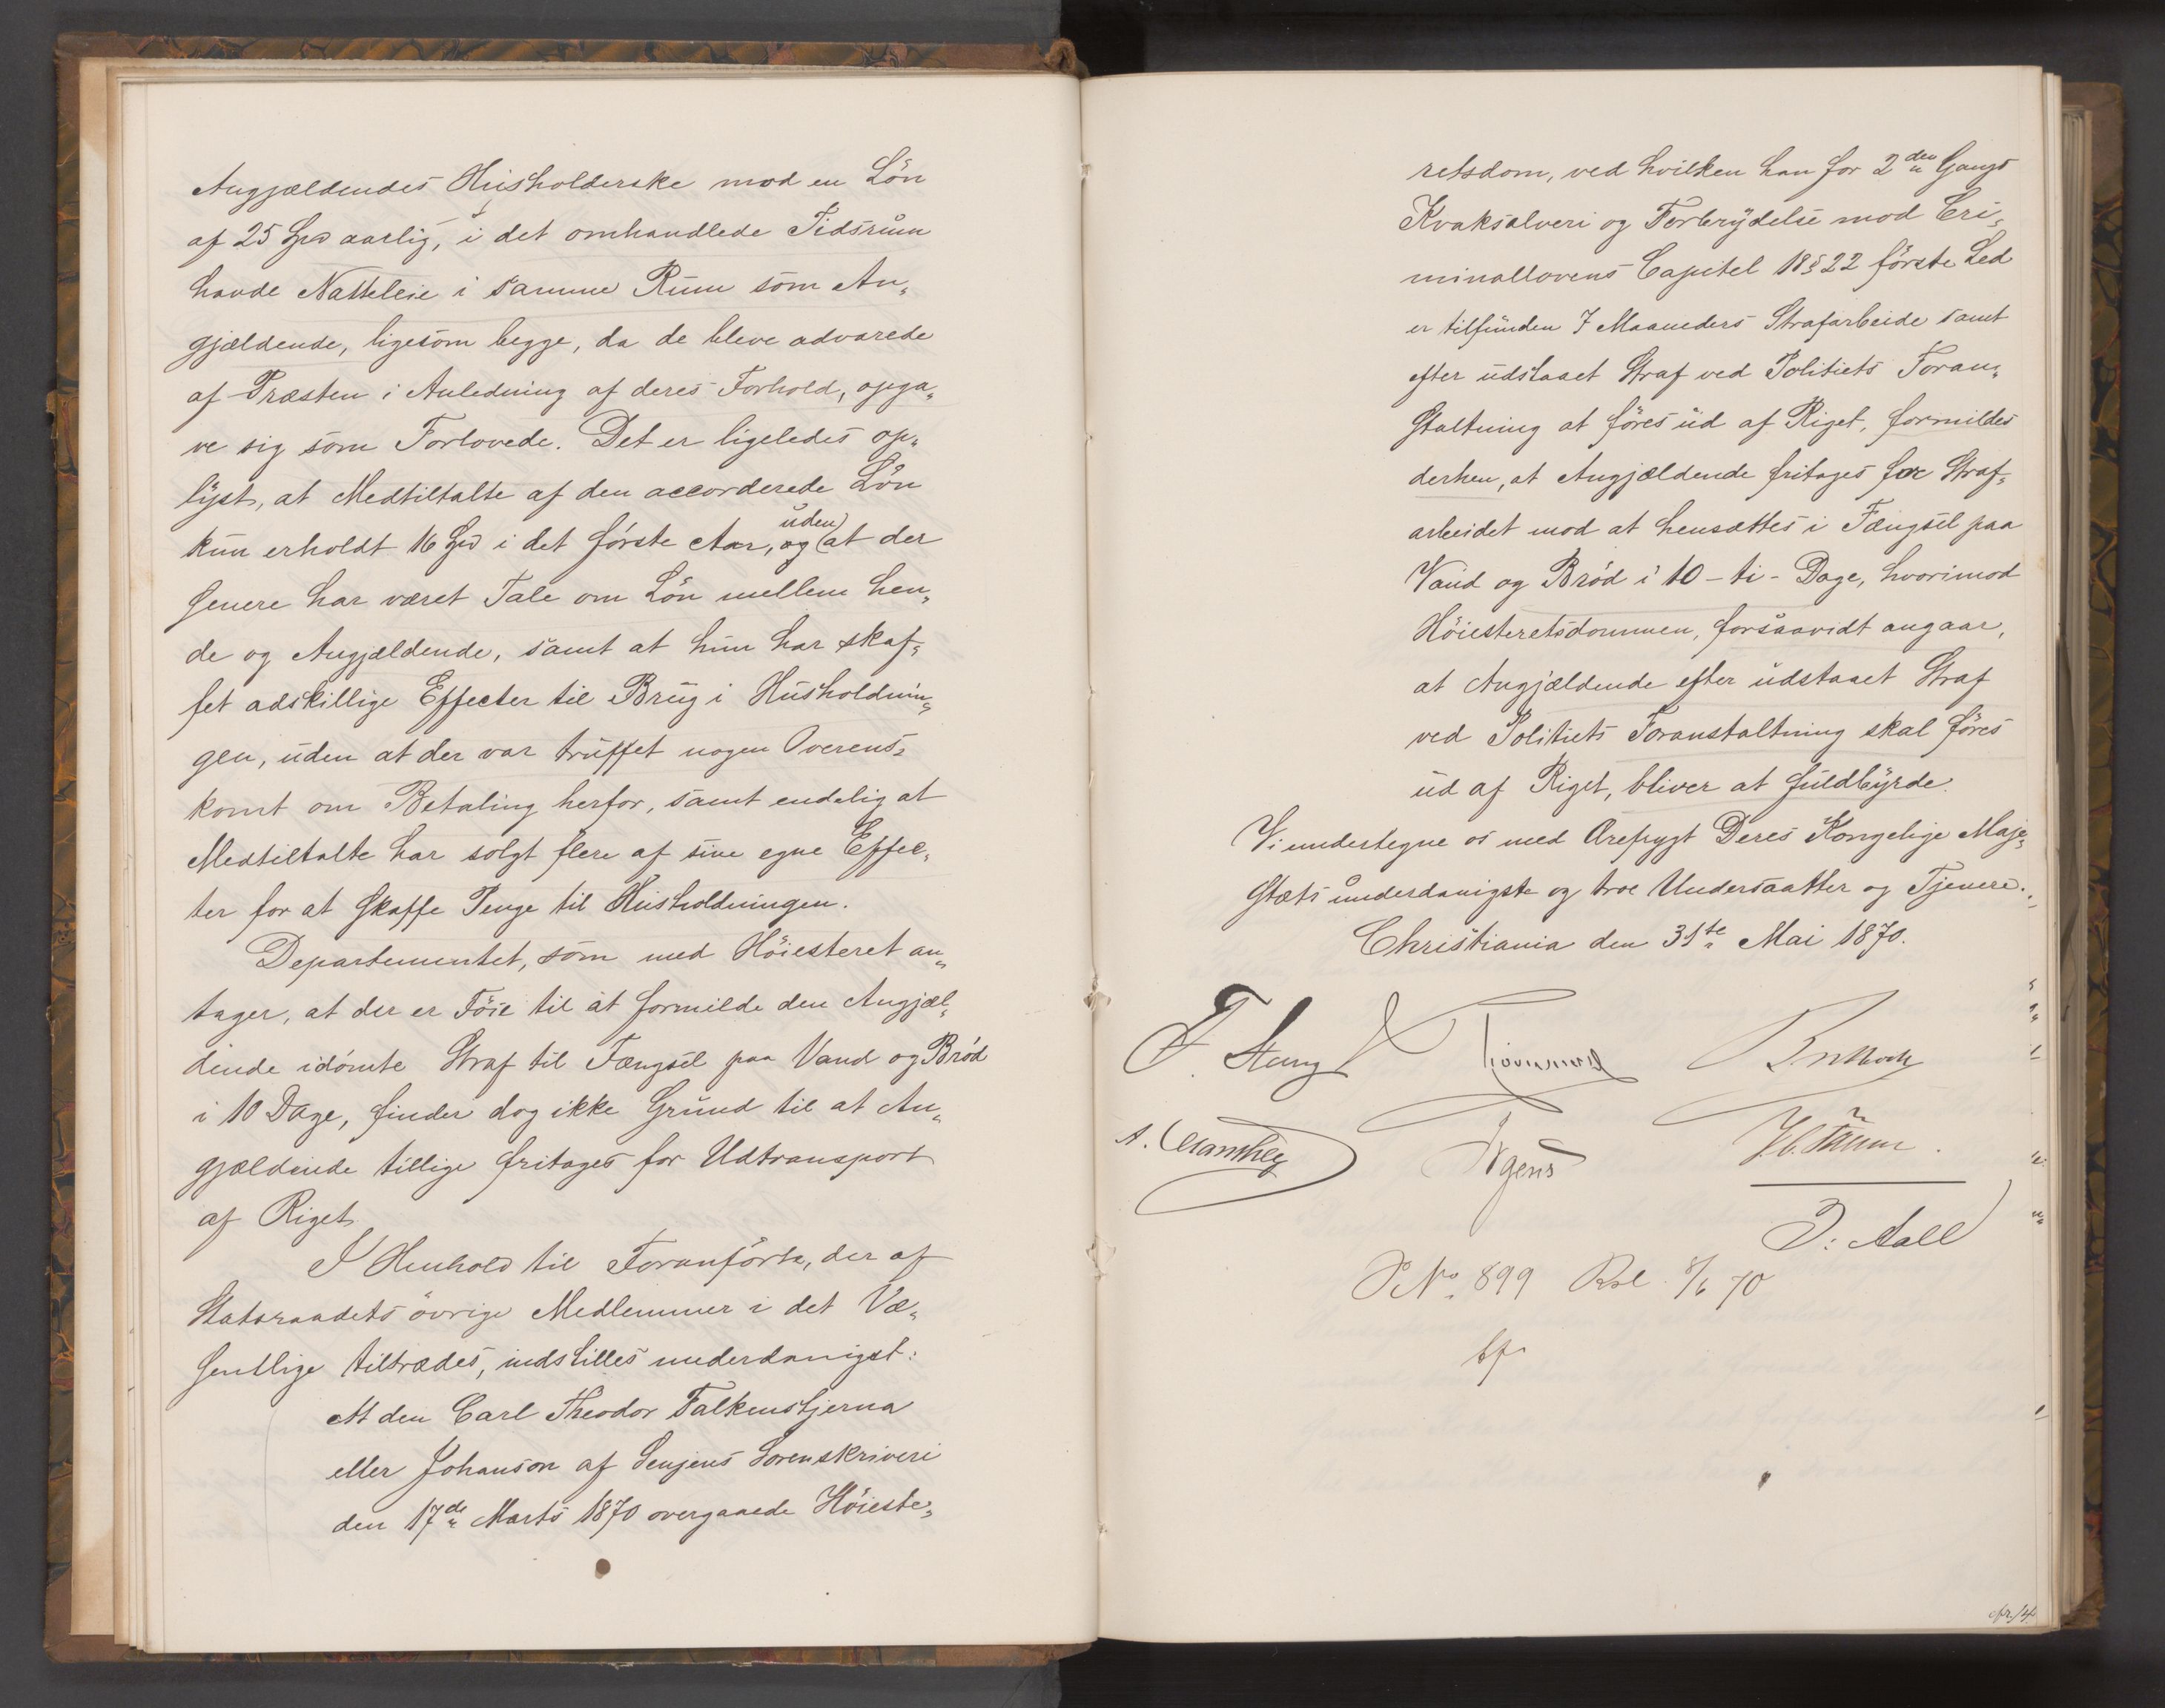 Angjældendes Husholderske mod en Lön
af 25 Spd aarlig, i det omhandlede Tidsrum
havde Natteleie i samme Rum som An„
gjældende, ligesom begge, da de bleve advarede
af Præsten i Anledning af deres Forhold, opga„
ve sig som Forlovede. Det er ligeledes op„
lyst, at Medtiltalte af den accorderede Lön
kun erholdt 16 Spd i det förste Aar, og (uden) at der
senere har været Tale om Lön mellem hen„
de og Angjældende, samt at hun har skaf„
fet adskillige Effecter til Brug i Husholdnin„
gen, uden at der var truffet nogen Overens„
komst om Betaling herfor, samt endelig at
Medtiltalte har solgt flere af sine egne Effec„
ter for at skaffe Penge til Husholdningen.
Departementet, som med Höiesteret an„
tager, at der er Föie til at formilde den Angjæl„
dende idömte Straf til Fængsel paa Vand og Bröd
i 10 Dage, finder dog ikke Grund til at An„
gjældende tillige fritages for Udtransport
af Riget
I Henhold til Foranförte, der af
Statsraadets övrige Medlemmer i det Væ„
sentlige tiltrædes, indstilles underdanigst:
At den Carl Theodor Falkenstjerna
eller Johanson af Senjens Sorenskriveri
den 17de Marts 1870 overgaaede Höieste„
retsdom, ved hvilken han for 2den Gangs
Kvaksalveri og Forbrydelse mod Cri„
minallovens Capitel 18 § 22 förste Led
er tilfunden 7 Maaneders Strafarbeide samt
efter udstaaet Straf ved Politiets Foran„
staltning at föres ud af Riget, formildes
derhen, at Angjældende fritages for Straf„
arbeidet mod at hensættes i Fængsel paa
Vand og Bröd i 10 - ti - Dage, hvorimod
Höiesteretsdommen, forsaavidt angaar,
at Angjældende efter udstaaet Straf
ved Politiets Foranstaltning skal föres
ud af Riget, bliver at fuldbyrde.
Vi undertegne os med Ærefrygt Deres Kongelige Maje„
stæts underdanigste og troe Undersaatter og Tjenere.
Christiania den 31te Mai 1870.
F. Stang
A.
Irgens
J. Aall
No. 899 8/6 70